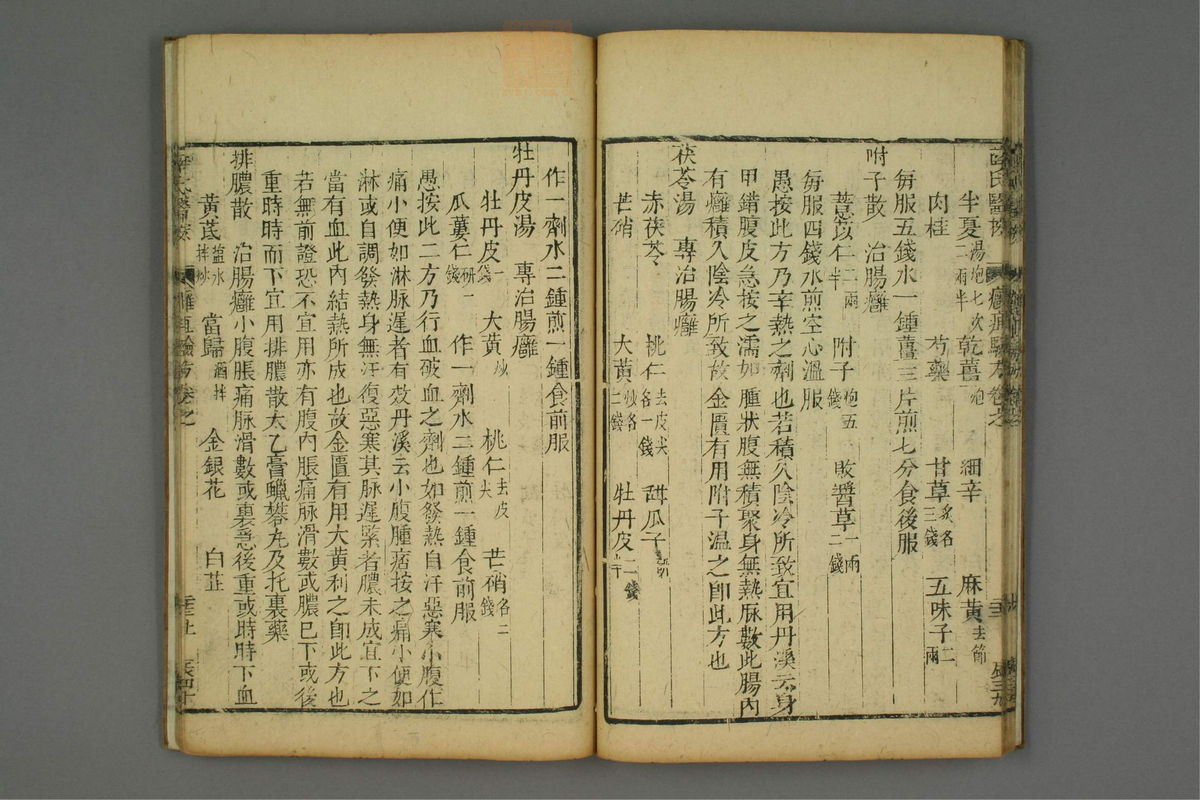 半夏湯炮七次二兩半 乾薑炮 細辛 麻黃去節
肉桂 芍藥 甘草炙各三錢 五味子二兩
每服五錢水一鍾薑三片煎七分食後服
附子散 治腸癰
薏苡仁二兩半 附子炮五錢 敗醬草一兩二錢
每服四錢水煎空心溫服
愚按此方乃辛熱之劑也若積久陰冷所致宜用丹溪云身
甲錯腹皮急按之濡如腫狀腹無積聚身無熱脉數此腸內
有癰積久陰冷所致故金匱有用附子溫之卽此方也
茯苓湯 專治腸癰
赤茯苓 桃仁去皮尖各一錢 甜瓜子
芒硝 大黃炒各二錢 牡丹皮二錢半
作一劑水二鍾煎一鍾食前服
牡丹皮湯 專治腸癰
牡丹皮一錢 大黃炒 桃仁去皮尖 芒硝各二錢
瓜蔞仁研一錢 作一劑水二鍾煎一鍾食前服
愚按此二方乃行血破血之劑也如發熱自汗惡寒小腹作
痛小便如淋脉遲者有效丹溪云小腹腫痞按之痛小便如
淋或自調發熱身無汗復惡寒其脉遲緊者膿未成宜下之
當有血此內結熱所成也故金匱有用大黃利之卽此方也
若無前證恐不宜用亦有腹內脹痛脉滑數或膿已下或後
重時時而下宜用排膿散太乙膏蠟礬丸及托裏藥
排膿散 治腸癰小腹脹痛脉滑數或裏急後重或時時下血
黃芪鹽水拌炒 當歸酒拌 金銀花 白芷